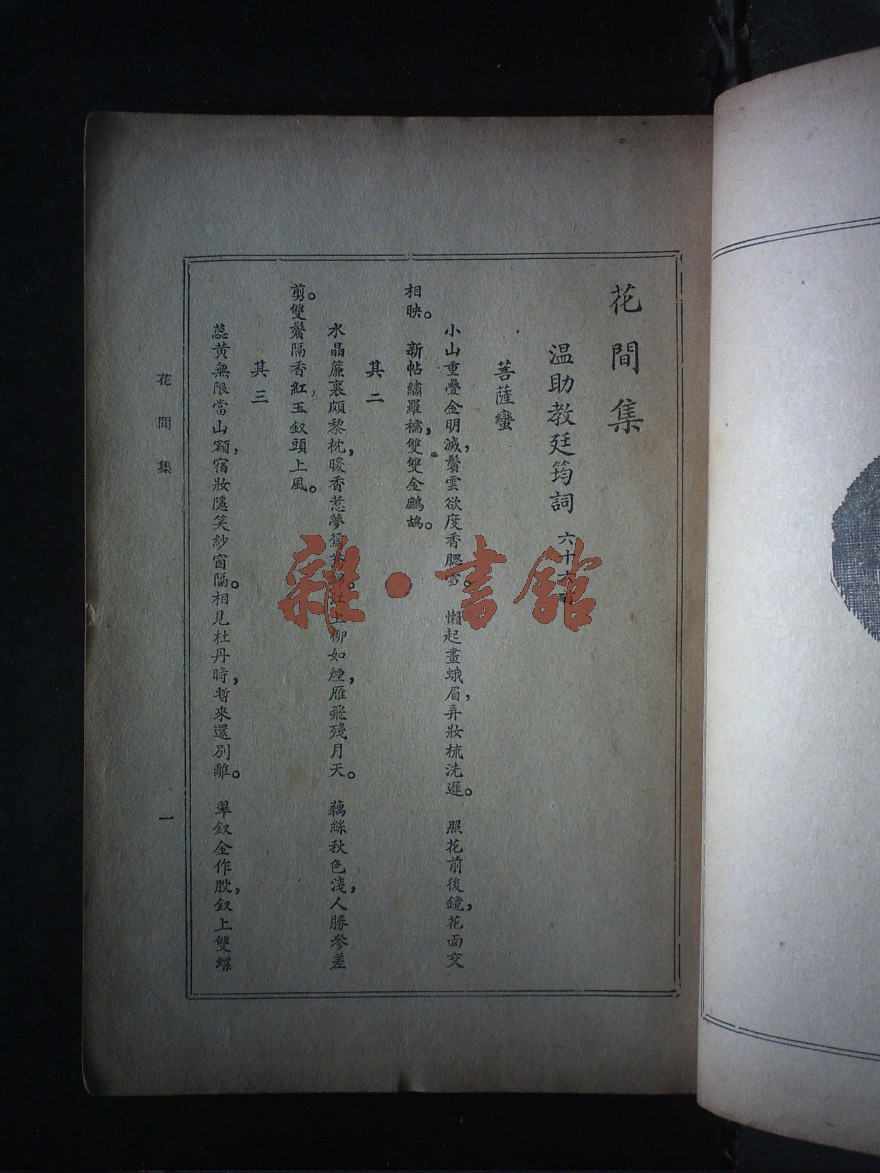 花間集
温助教廷筠詞 六十六首
菩薩蠻
小山重疊金明滅，鬢雲欲度香腮雪。懶起畫蛾眉，弄妝梳洗遲。照花前後鏡，花面交
相映。新帖繡羅襦，雙雙金鷓鴣。
其二
水晶簾裏頗黎枕，暖香惹夢鴛鴦錦。江上柳如煙，雁飛殘月天。藕絲秋色淺，人勝參差
剪。雙鬢隔香紅，玉釵頭上風。
其三
蕊黃無限當山額，宿妝隱笑紗窗隔。相見杜丹時，暫來還別離。翠釵金作股，釵上雙蝶
花間集
一
雜·書館